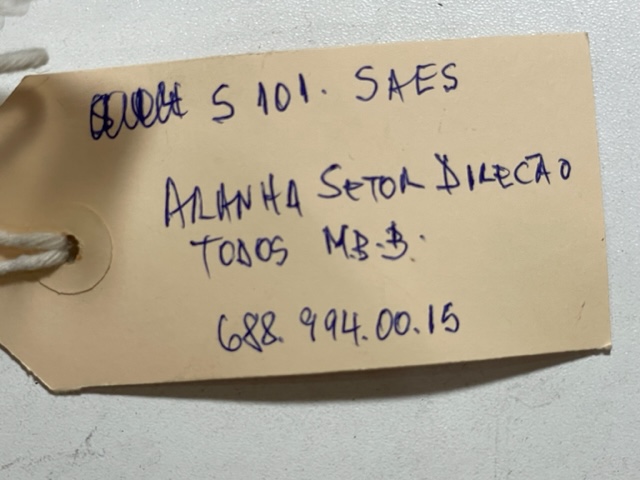 S 101. SAES
ARANHA SETOR DIRECÃO
TODOS M.B.B.
688.994.00.15